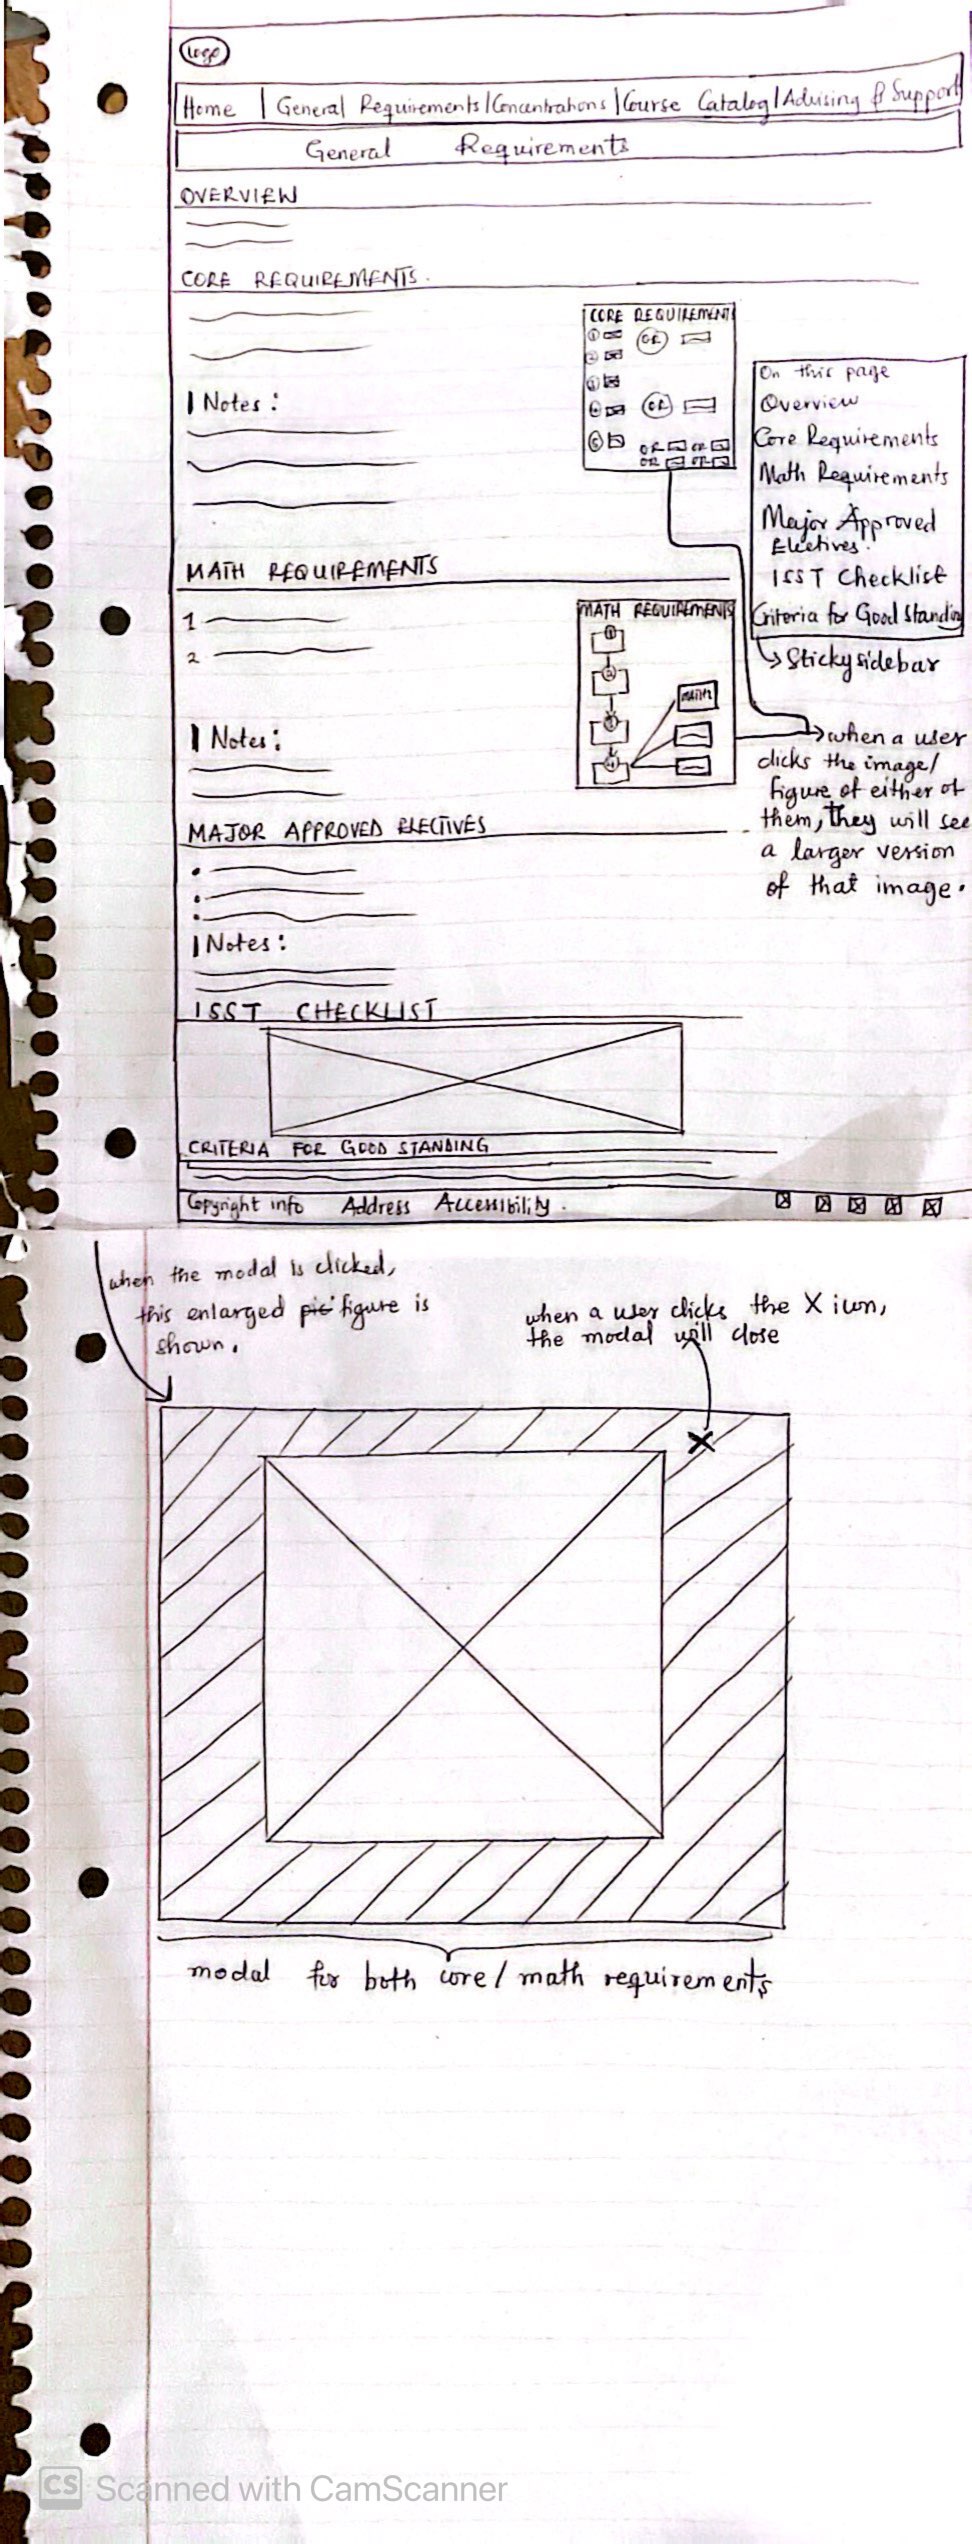 Logo
Home | General Requirements | Concentrations | Course Catalog | Advising & Support
General Requirements
OVERVIEW
CORE REQUIREMENTS.
Notes:
CORE REQUIREMENT
1 OR
2
3
4 OR
5 OR OR
OR OR
On this page
Overview
Core Requirements
Math Requirements
Major Approved
Electives.
ISST Checklist
Criteria for Good Standing
Sticky sidebar
MATH REQUIREMENTS
1
2
Notes:
MATH REQUIREMENTS
1
2
3
4
when a user
clicks the image/
figure of either of
them, they will see
a larger version
of that image.
MAJOR APPROVED ELECTIVES
Notes:
ISST CHECKLIST
CRITERIA FOR GOOD STANDING
Copyright info Address Accessibility.
when the modal is clicked,
this enlarged pic figure is
shown.
when a user clicks the X icon,
the modal will close
X
modal for both core/math requirements
CS Scanned with CamScanner